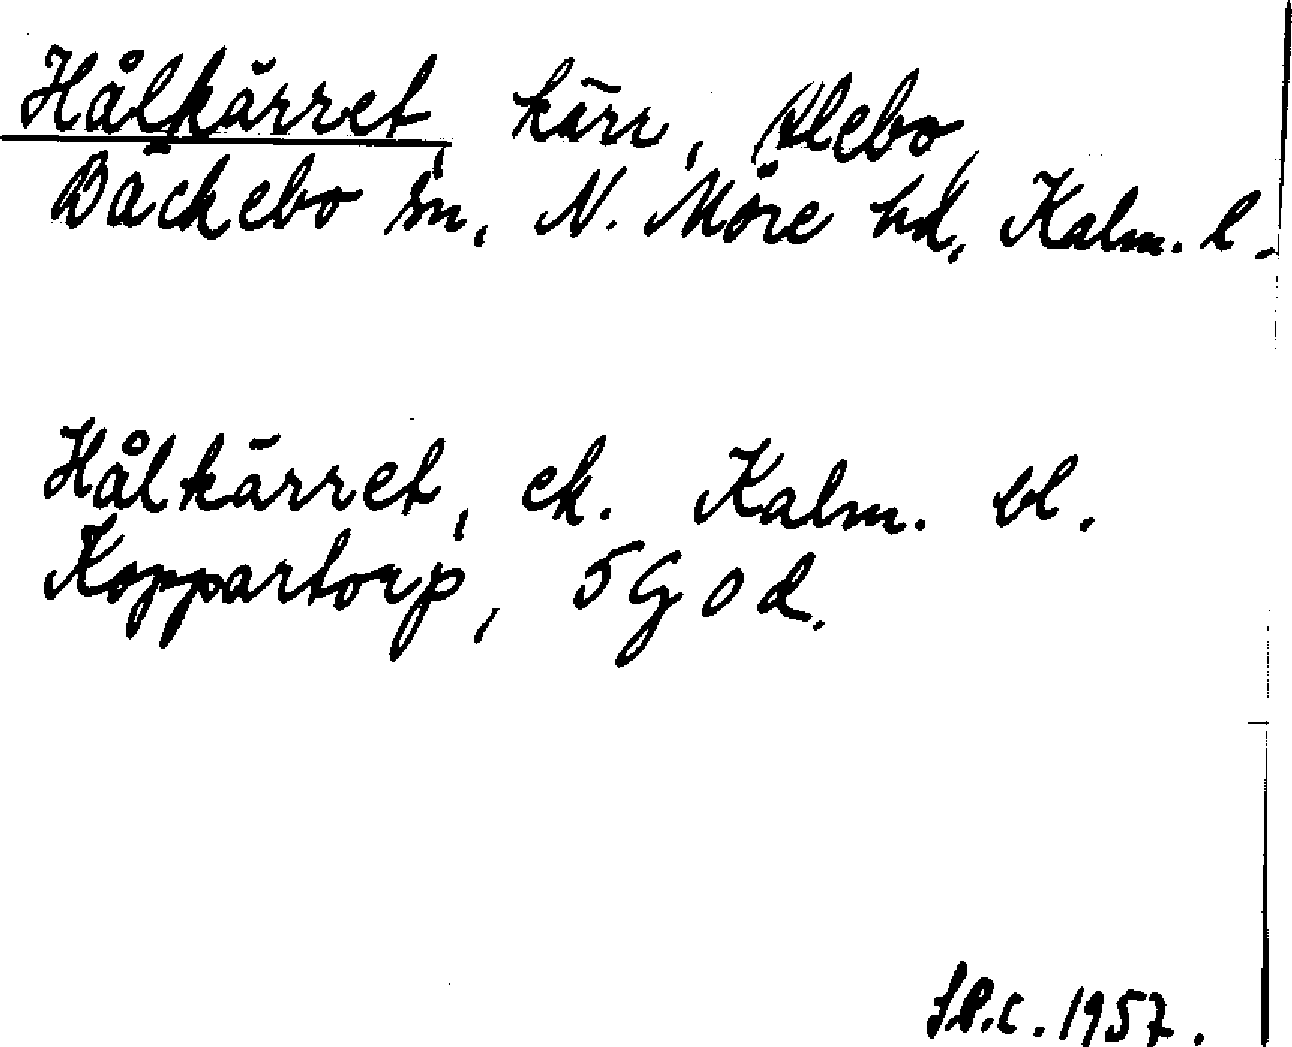 Hålkärret, kärr, Alebo,
Bäckebo sn, N. Möre hd, Kalm. l.
Hålkärret, ek. Kalm. bl.
Koppartorp, 5G0d.
1957.